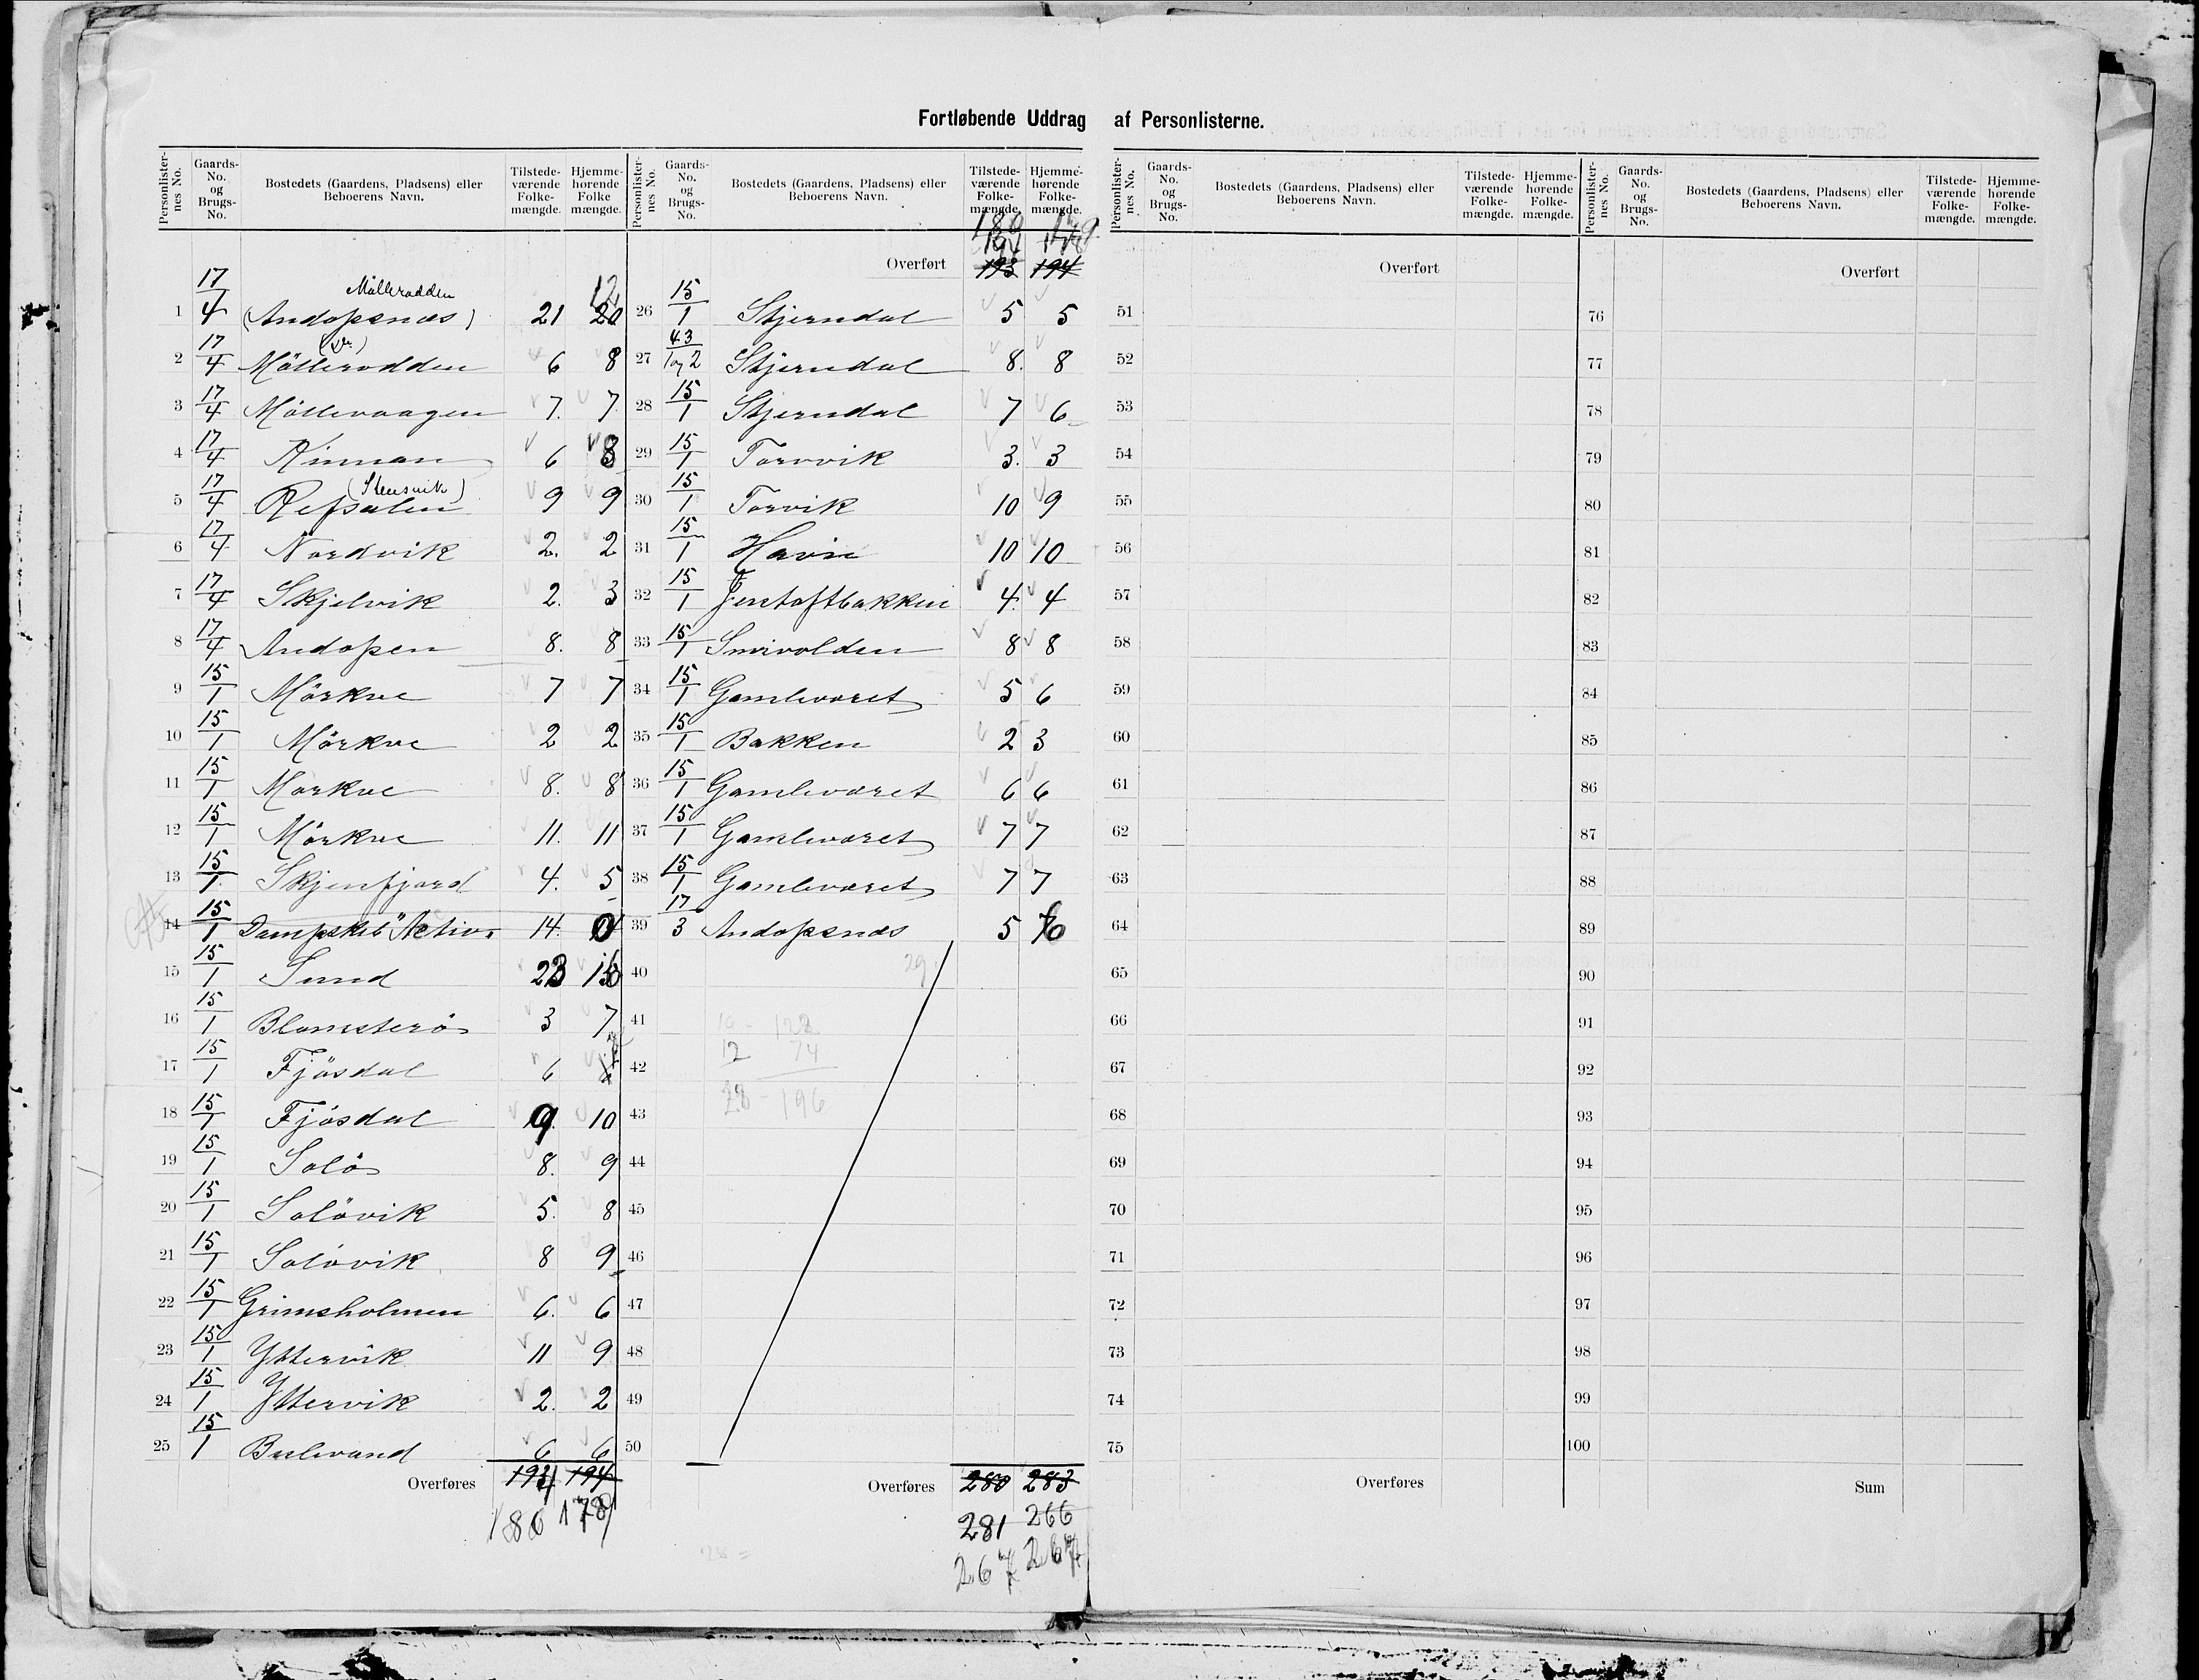 Fortløbende Uddrag af Personlisterne.
Personlister-nes No. | Gaards-No. og Brugs-No. | Bostedets (Gaardens, Pladsens) eller Beboerens Navn. | Tilstede-værende Folke-mængde. | Hjemme-hørende Folke mængde.
1 17/4 Mölleradden (Andopsnæs) 21
2 17/4 Möllerodden 6 8
3 17/4 Möllevaagen 7. 7
4 17/4 Rinman 6 8
5 17/4 Refsalen (Stensvik) 9 9
6 17/4 Nordvik 2. 2
7 17/4 Skjelvik 2. 3
8 17/4 Andopen 8. 8
9 15/1 Mörkve 7 7
10 15/1 Mörkve 2 2
11 15/1 Mörkve 8. 8
12 15/1 Mörkve 11. 11
13 15/1 Skjenfjord 4. 5
14 15/1 Dampskib "Activ" 14. 0
15 15/1 Sund
16 15/1 Blomsterö 3 7
17 15/1 Fjösdal 6
18 15/1 Fjösdal 9. 10
19 15/1 Solö 8. 9
20 15/1 Solövik 5. 8
21 15/1 Solövik 8 9
22 15/1 Grimsholmen 6. 6
23 15/1 Yttervik 11 9
24 15/1 Yttervik 2. 2
25 15/1 Bulevand 6 6
Overføres 194
180 178
Personlister-nes No. | Gaards-No. og Brugs-No. | Bostedets (Gaardens, Pladsens) eller Beboerens Navn. | Tilstede-værende Folke-mængde. | Hjemme-hørende Folke-mængde.
Overført 193 194
26 15/1 Stjerndal 5 5
27 43/1 og 2 Stjerndal 8. 8
28 15/1 Stjerndal 7 6
29 15/1 Torvvik 3. 3
30 15/1 Torvik 10 9
31 15/1 Havn 10 10
32 15/1 Jentoftbakken 4. 4
33 15/1 Smivolden 8 8
34 15/1 Gamleværet 5 6
35 15/1 Bakken 2 3
36 15/1 Gamleværet 6 6
37 15/1 Gamleværet 7 7
38 15/1 Gamleværet 7 7
39 17/3 Andopsnæs 5 6
40 29
41 128
42 12 74
43 28 - 196
44
45
46
47
48
49
50
Overføres 280 283
281 266
267 267
Personlister-nes No. | Gaards-No. og Brugs-No. | Bostedets (Gaardens, Pladsens) eller Beboerens Navn. | Tilstede-værende Folke-mængde. | Hjemme-hørende Folke-mængde.
Overført
51
52
53
54
55
56
57
58
59
60
61
62
63
64
65
66
67
68
69
70
71
72
73
74
75
Overføres
Personlister-nes No. | Gaards-No. og Brugs-No. | Bostedets (Gaardens, Pladsens) eller Beboerens Navn. | Tilstede-værende Folke-mængde. | Hjemme-hørende Folke-mængde.
Overført
76
77
78
79
80
81
82
83
84
85
86
87
88
89
90
91
92
93
94
95
96
97
98
99
100
Sum